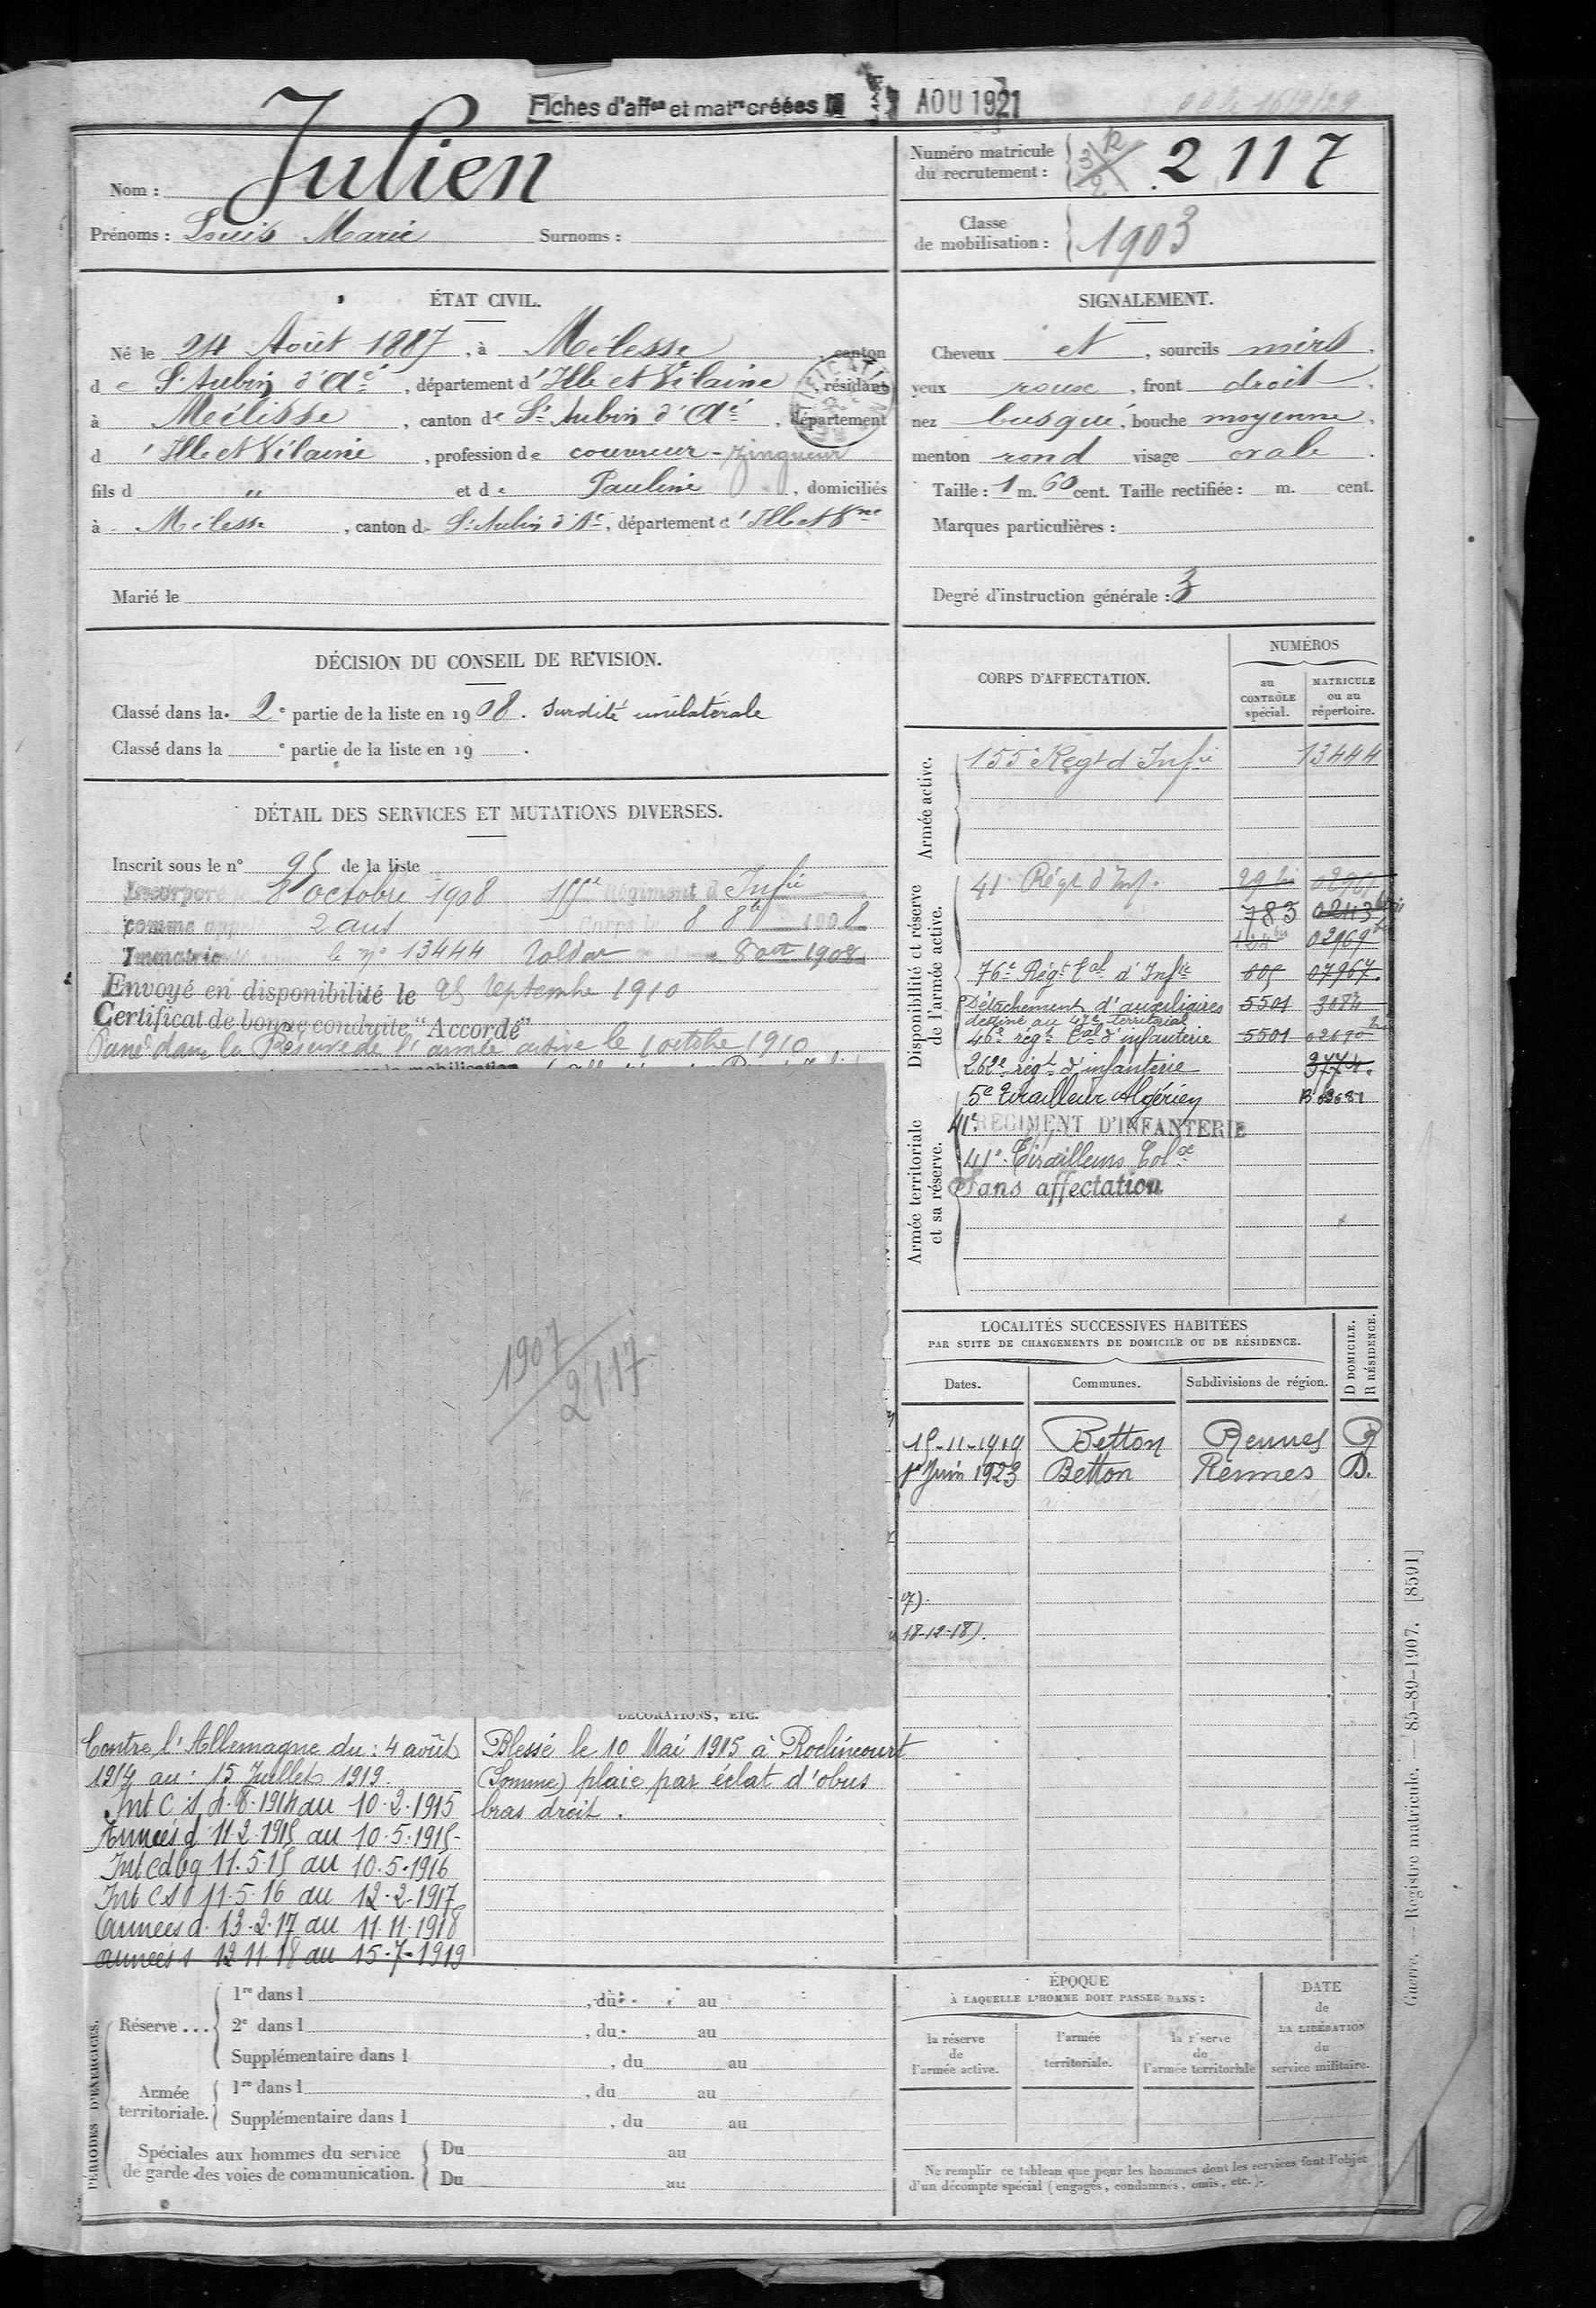 Fiches d'aff^on et mat^re créées AOU 1921
Nom : Julien
Prénoms : Louis Marie Surnoms :
Numéro matricule du recrutement : 2117
Classe de mobilisation : 1903
ÉTAT CIVIL.
Né le 24 Août 1887, à Mélesse, canton
de St Aubin d'Aé, département d'Ille et Vilaine, résidant
à Mélisse, canton de St Aubin d'Aé, département
d'Ille et Vilaine, profession de couvreur - zingueur
fils d " et de Pauline, domiciliés
à Mélesse, canton d St Aubin d'Aé, département d'Ille et Vne
Marié le
SIGNALEMENT.
Cheveux et, sourcils noirs.
yeux roux, front droit,
nez busqué, bouche moyenne,
menton rond visage ovale.
Taille : 1 m. 60 cent. Taille rectifiée : m. cent.
Marques particulières :
Degré d'instruction générale : 3
DÉCISION DU CONSEIL DE RÉVISION.
Classé dans la 2e partie de la liste en 1908. Surdité unilatérale
Classé dans la e partie de la liste en 19 .
DÉTAIL DES SERVICES ET MUTATIONS DIVERSES.
Inscrit sous le n° 95 de la liste
Incorporé le 8 octobre 1908 155e Régiment d'Infie
comme app 2 ans Corps le 8 8bre 1908
Immatriculé le n° 13444 soldat 8 oct 1908
Envoyé en disponibilité le 25 septembre 1910
Certificat de bonne conduite "Accordé"
Passé dans la Réserve de l'armée active le 1 octobre 1910
1907
2117
CORPS D'AFFECTATION.
NUMÉROS
au CONTRÔLE spécial.
MATRICULE ou au répertoire.
Armée active.
155e Regt d'Infie 13444
Disponibilité et réserve de l'armée active.
41e Régt d'Inf.
783
02969
76e Régt Tal d'Infie 07967
Détachement d'auxiliaires 5501
destiné au 47e territorial
46e régt Tal d'infanterie 5501
262e régt d'infanterie 3774.
Armée territoriale et sa réserve.
5e Tirailleur Algérien
41e REGIMENT D'INFANTERIE
41e Tirailleurs Colx
Sans affectation
LOCALITÉS SUCCESSIVES HABITÉES
PAR SUITE DE CHANGEMENTS DE DOMICILE OU DE RÉSIDENCE.
Dates. Communes. Subdivisions de région. D DOMICILE. R RÉSIDENCE.
15-11-1919 Betton Rennes R
1er Juin 1923 Betton Rennes D.
7).
18-12-18).
DÉCORATIONS, ETC.
Contre l'Allemagne du : 4 août
1914 au : 15 Juillet 1919.
Int C.S 4.8.1914 au 10.2.1915
Armées d 11.2.1915 au 10.5.1915
Int cdbg 11.5.15 au 10.5.1916
Int CS d 11.5.16 au 12.2.1917
Armées d. 13.2.17 au 11.11.1918
armées s 12.11.18 au 15.7.1919
Blessé le 10 Mai 1915 à Roclincourt
(Somme) plaie par éclat d'obus
bras droit.
PÉRIODES D'EXERCICES.
Réserve ... 1re dans l , du au
2e dans l , du au
Supplémentaire dans l , du au
Armée territoriale. 1re dans l , du au
Supplémentaire dans l , du au
Spéciales aux hommes du service Du au
de garde des voies de communication. Du au
ÉPOQUE
À LAQUELLE L'HOMME DOIT PASSER DANS :
la réserve de l'armée active.
l'armée territoriale.
la réserve de l'armée territoriale
DATE de LA LIBÉRATION du service militaire.
Ne remplir ce tableau que pour les hommes dont les services font l'objet
d'un décompte spécial (engagés, condamnés, omis, etc.).
Guerre. — Registre matricule. — 85-89-1907. [8591]